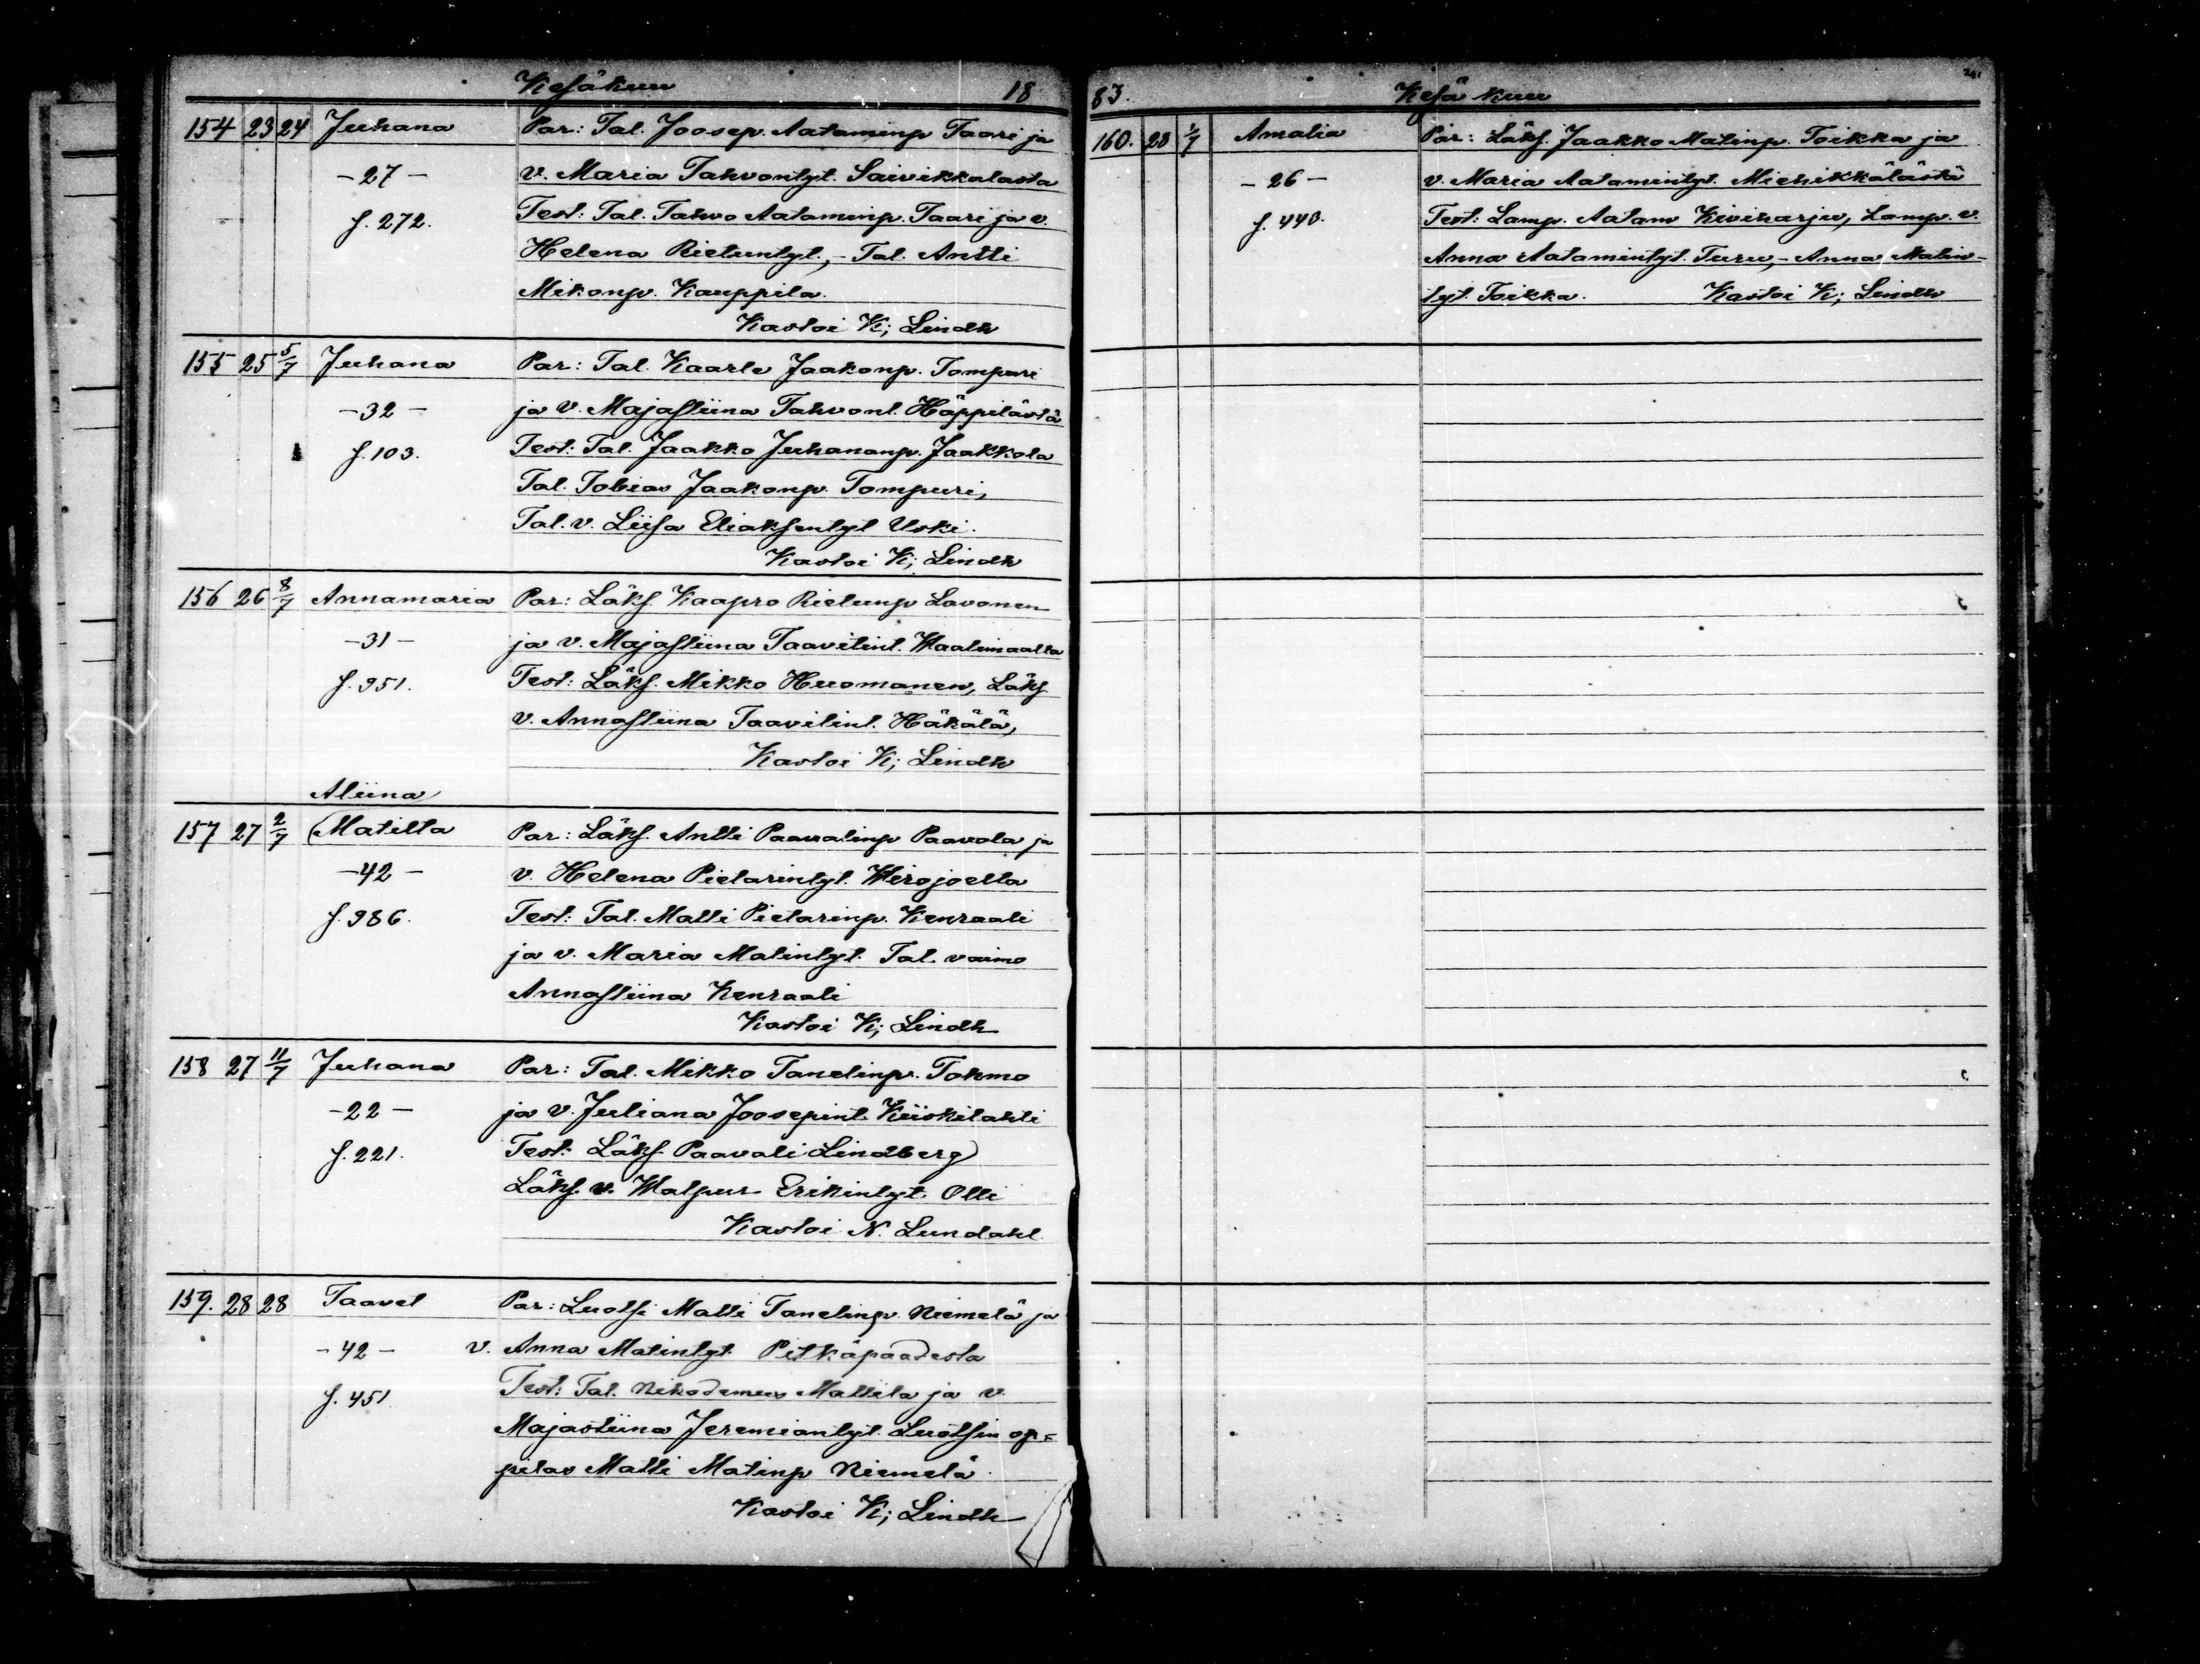 Kesäkuu 18
154 23 24 Juhana Par: Tal. Joosep. Aataminp. Taari ja
-27- v. Maria Tahvontyt. Saivikkalasta
f. 272. Test: Tal. Tahvo Aataminp. Taari ja v.
Helena Rietuntyt., - Tal. Antti
Mikonp. Kauppila.
Kastoi K; Lindh
155 25 5/7 Juhana Par: Tal. Kaarle Jaakonp. Tompuri
-32- ja v. Majastiina Tahvont. Häppilästä
f. 103. Test: Tal. Jaakko Juhananp. Jaakkola
Tal. Tobias Jaakonp. Tompuri,
Tal. v. Liisa Eliaksentyt Uski.
Kastoi K; Lindh
156 26 8/7 Annamaria Par: Läks. Kaapro Rietunp Lavonen
-31- ja v. Majastiina Taavitint. Waalimaalta
f. 951. Test: Läks. Mikko Huomanen, Läks.
v. Annastiina Taavitint. Häkälä,
Kastoi K; Lindh
Aliina
157 27 2/7 (Matilta Par: Läks. Antti Paavalinp Paavola ja
-42- v. Helena Pietarintyt. Wirojoelta
f. 986. Test: Tal. Matti Pietarinp. Kenraali
ja v. Maria Matintyt. Tal. vaimo
Annastiina Kenraali
Kastoi K; Lindh
158 27 11/7 Juhana Par: Tal. Mikko Tanelinp. Tohmo
-22- ja v. Juliana Joosepint. Kiiskilahti
f. 221. Test: Läks. Paavali Lindberg
Läks. v. Walpur Erikintyt. Olli
Kastoi N. Lundahl.
159. 28 28 Taavet Par: Luotsi Matti Tanelinp. Niemelä ja
-42- v. Anna Matintyt. Pitkäpaadesta
f. 451 Test: Tal. Nikodemus Mattila ja v.
Majastiina Jeremiantyt. Luotsin op=
pilas Matti Matinp Niemelä.
Kastoi K; Lindh
83. Kesä kuu 241
160. 28 1/7 Amalia Par: Läks. Jaakko Matinp. Toikka ja
-26- v. Maria Aatamintyt. Miehikkälästä
f. 440. Test: Lamp. Aatam Kiviharju, Lamp. v.
Anna Aatamintyt. Turu, - Anna Matin-
tyt. Toikka. Kastoi K; Lindh